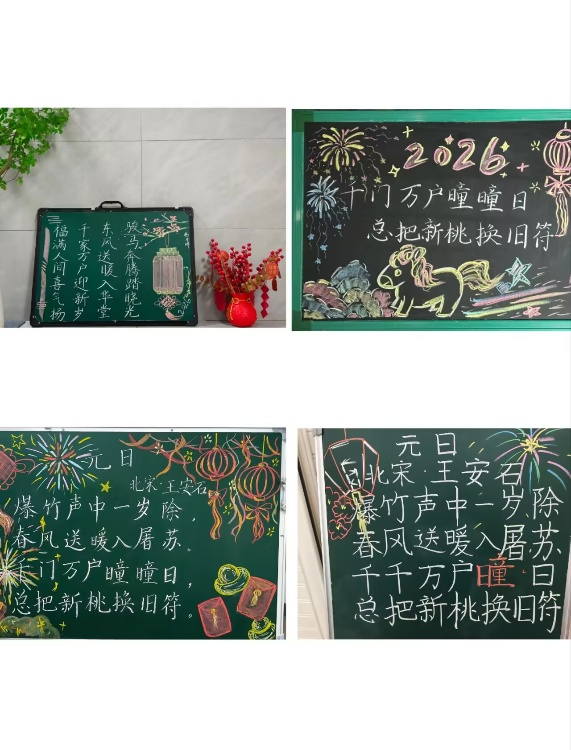 骏马奔腾踏晓光
东风送暖入华堂
千家万户迎新岁
福满人间喜气扬
2026
千门万户瞳瞳日
总把新桃换旧符
元日
北宋·王安石
爆竹声中一岁除，
春风送暖入屠苏。
千门万户瞳瞳日，
总把新桃换旧符。
元日
北宋·王安石
爆竹声中一岁除
春风送暖入屠苏
千千万户瞳日
总把新桃换旧符